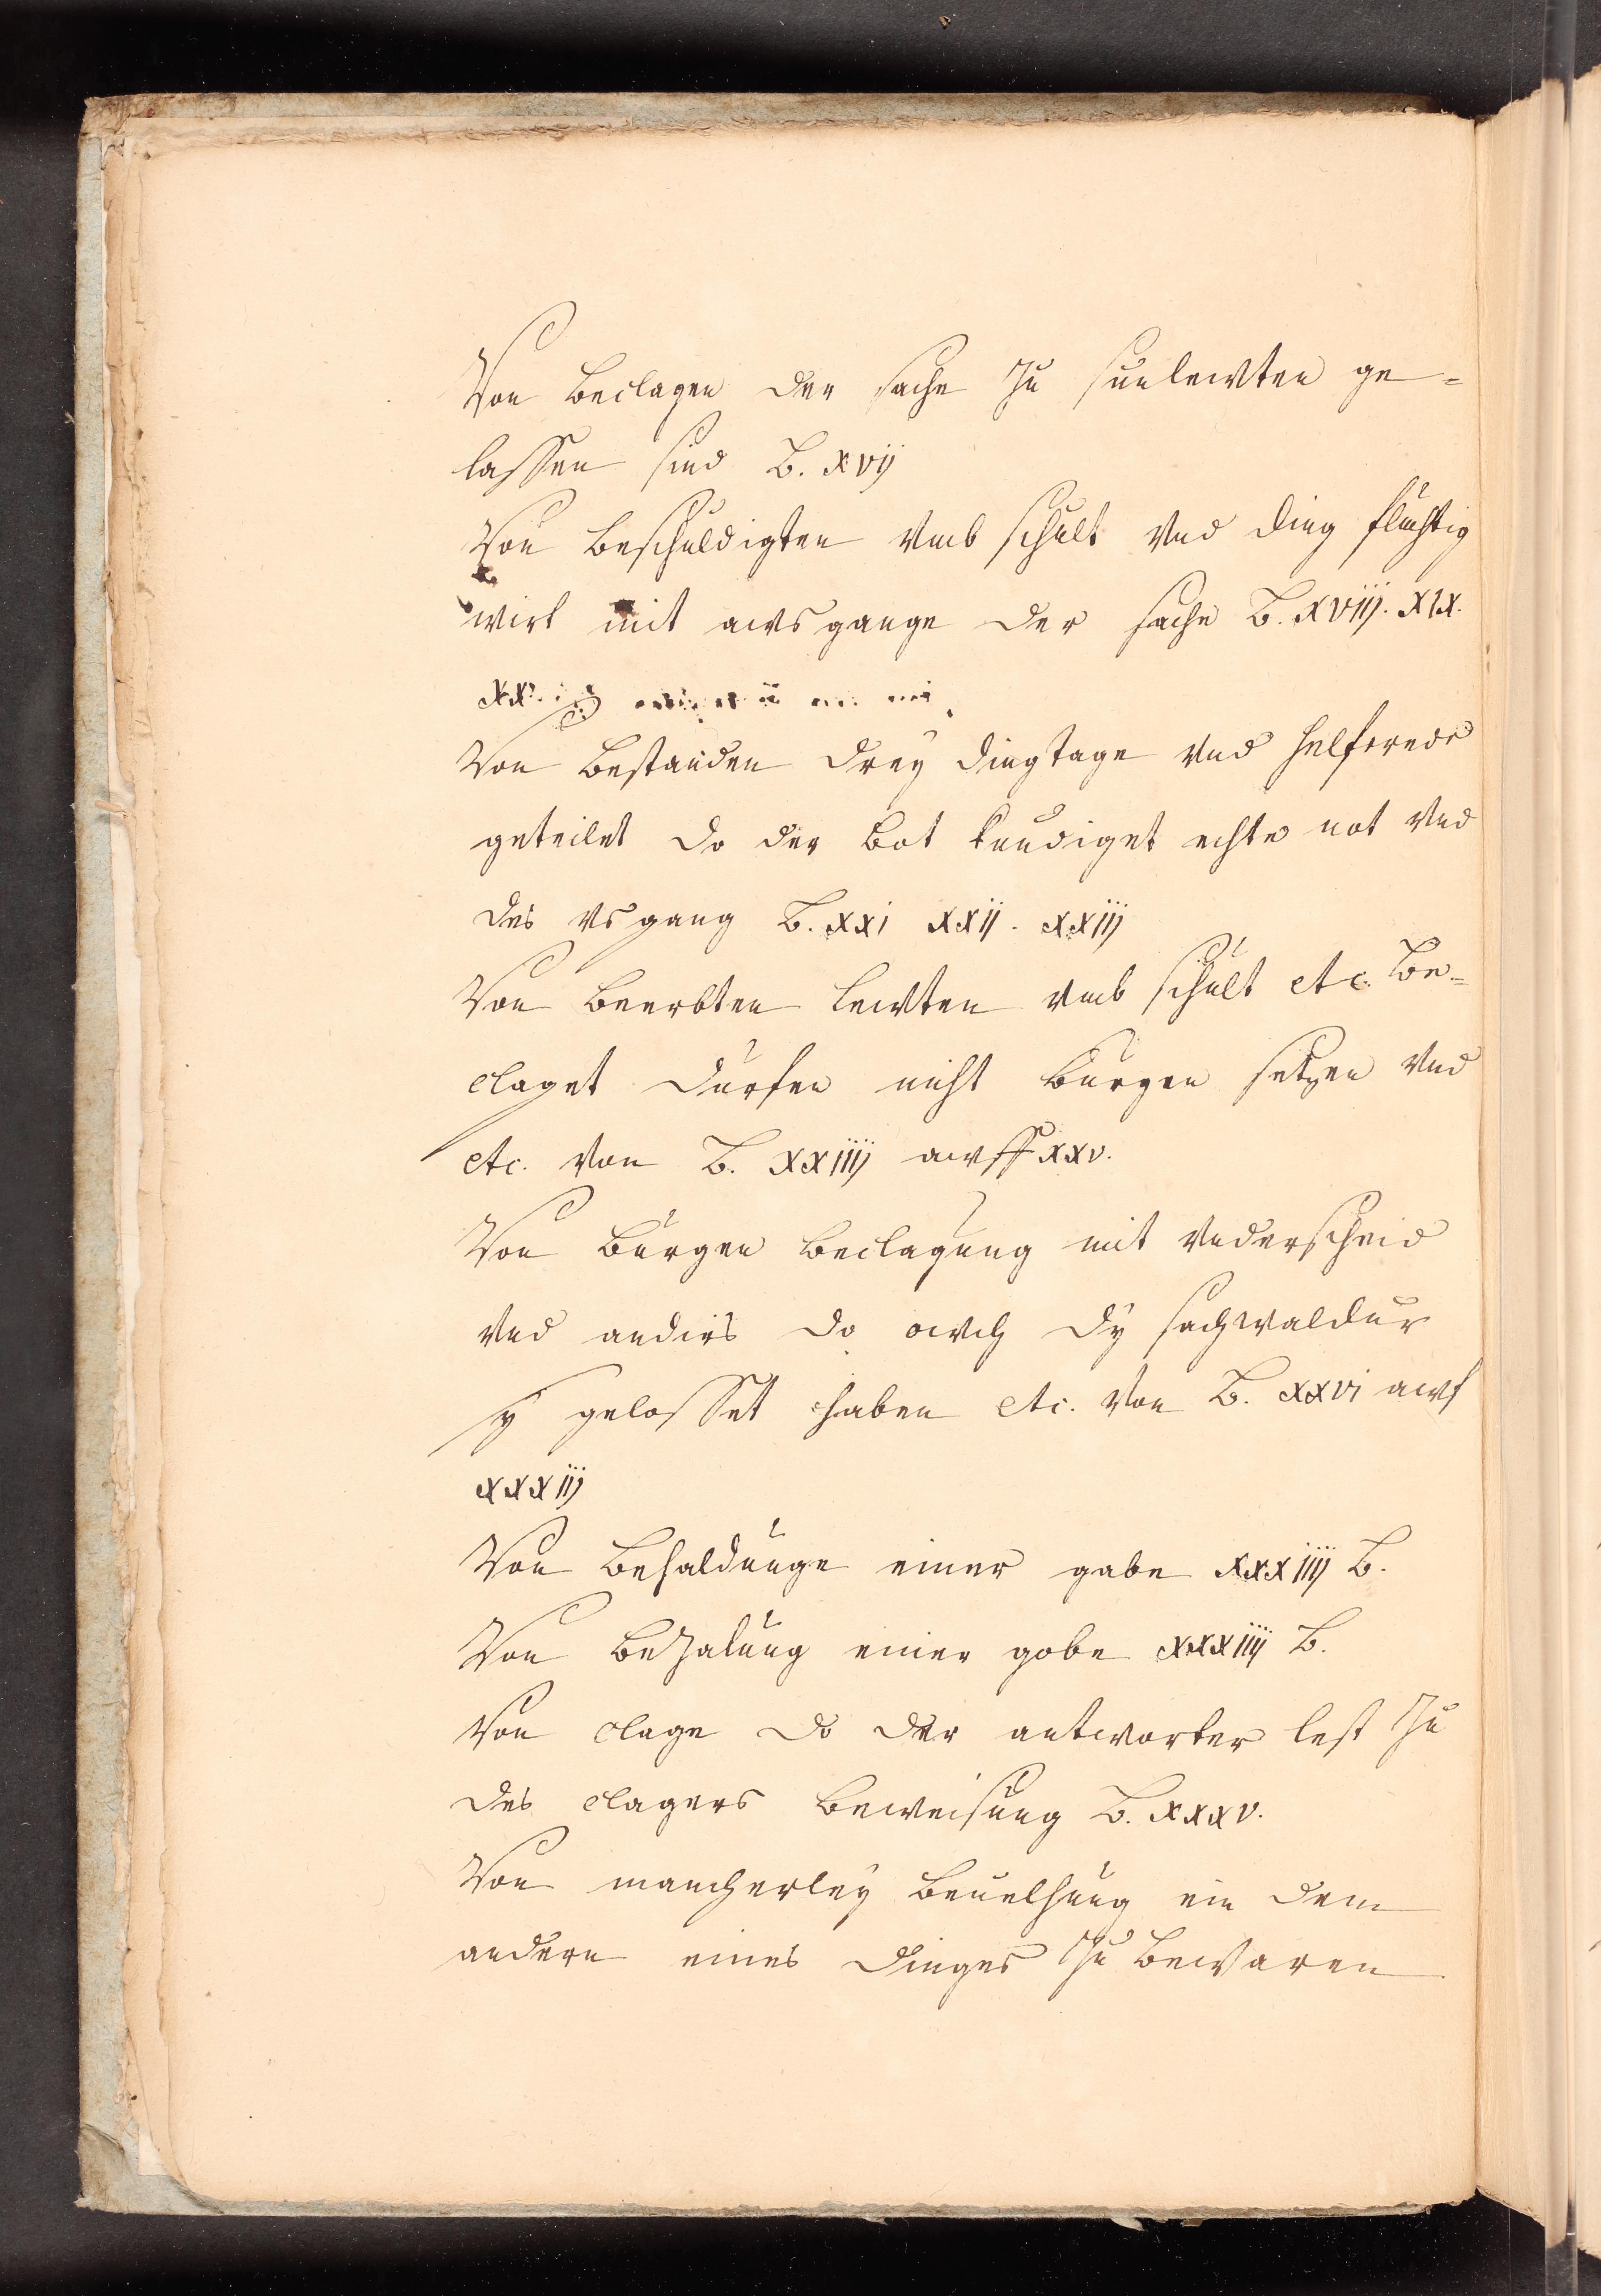 Von beclagen der sache zu sunlewten ge-
lassen sind B. xvij
Von beschuldigten vmb schult vnd ding fluchtig
wirt mit awsgange der sache B. xviij. xix.
xx.
Von bestanden drey dingtage vnd helferede
geteilet do der bot kundiget echte not vnd
des vsgang B. xxi xxij. xxiij
Von beerbten lewten vmb schult etc. be-
claget durfen nicht burgen setzen vnd
etc. von B. xxiiij awff xxv.
Von burgen beclagung mit vnderscheid
vnd anders do owch dy sachwaldur
y gelosset haben etc. von B. xxvi awf
xxxiij
Von behaldunge einer gabe xxxiiij B.
Von bezalung einer gobe xxxiiij B.
Von clage do der antworter lest zu
des clagers beweisung B. xxxv.
Von mancherley beuelhung ein dem
andern eines dinges zu bewaren